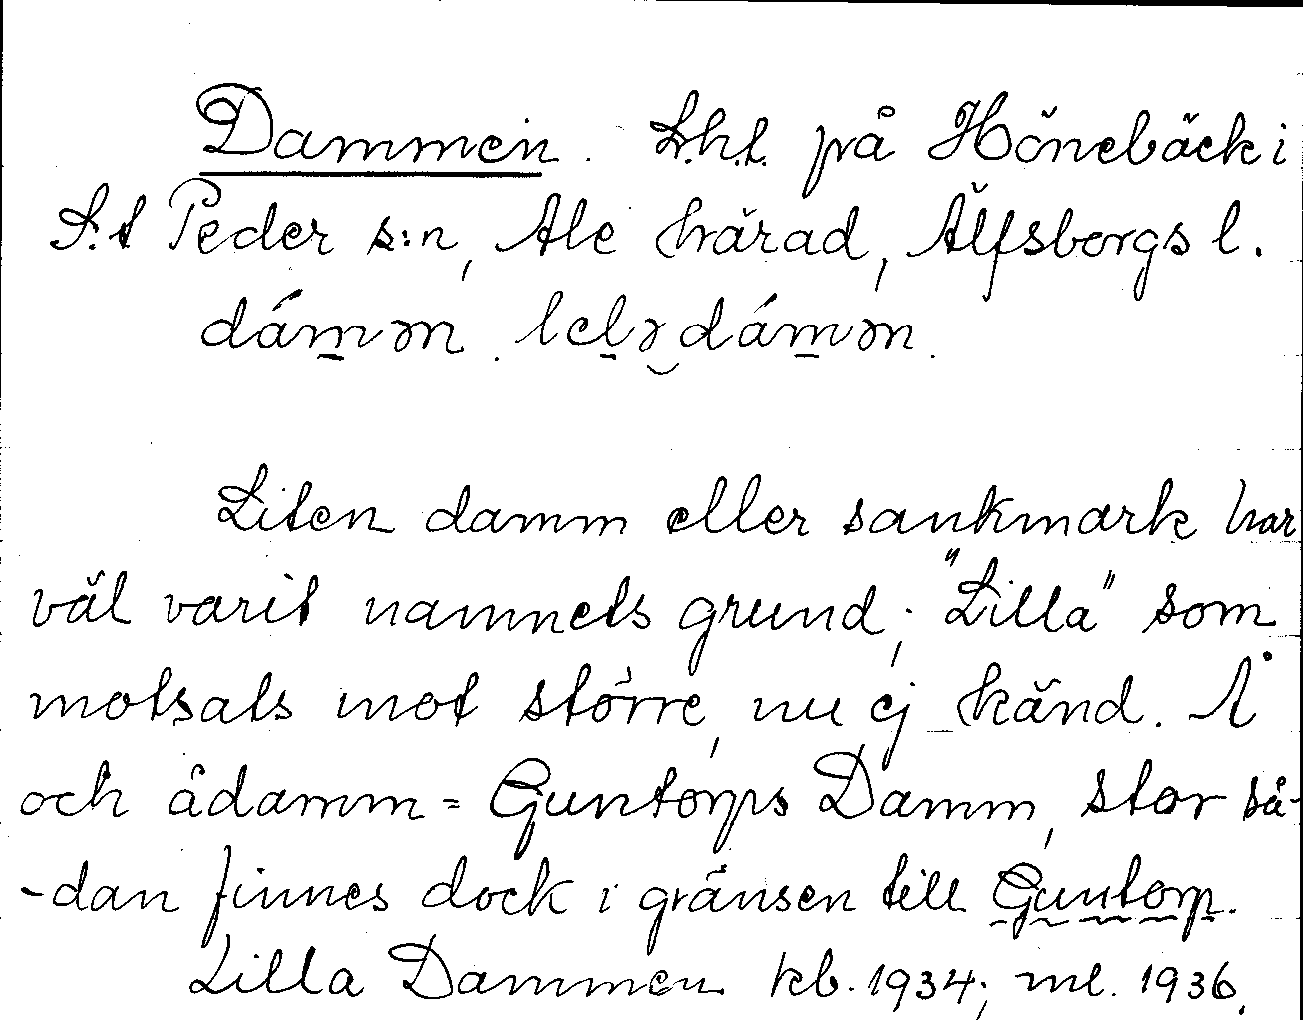 Dammen. Lht. på Hönebäck i
S:t Peder s:n, Ale härad, Älfsborgs l.
dámən. lelə dámən.
Liten damm eller sankmark har
väl varit namnets grund; "Lilla" som
motsats mot större, nu ej känd. Å
och ådamm = Guntorps Damm, stor så-
-dan finnes dock i gränsen till Guntorp.
Lilla Dammen kb. 1934; ml. 1936.